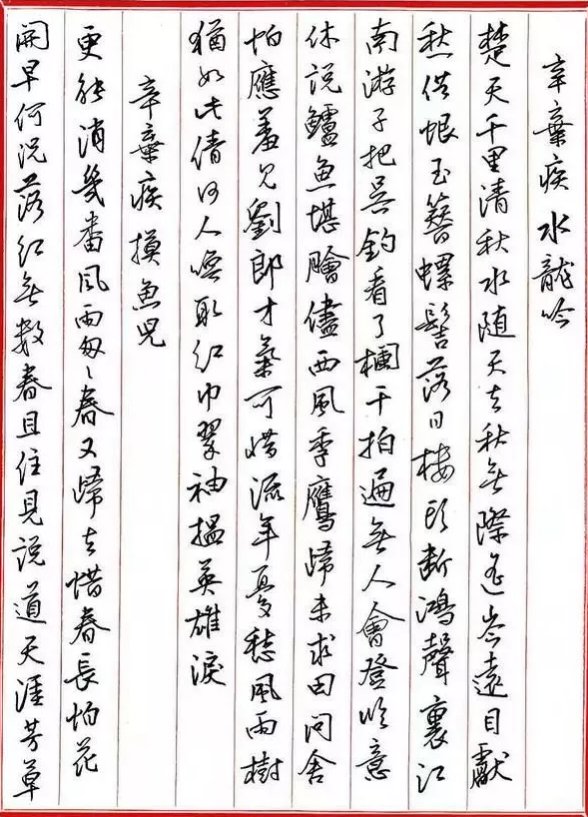 辛棄疾 水龍吟
楚天千里清秋水随天去秋無際遥岑遠目獻
愁供恨玉簪螺髻落日樓頭断鴻聲裏江
南游子把吴鈎看了欄干拍遍無人會登临意
休説鱸魚堪膾儘西風季鷹歸未求田問舍
怕應羞見劉郎才氣可惜流年憂愁風雨樹
猶如此倩何人喚取紅巾翠袖揾英雄淚
辛棄疾 摸魚兒
更能消幾番風雨匆々春又歸去惜春長怕花
開早何況落紅無數春且住見説道天涯芳草